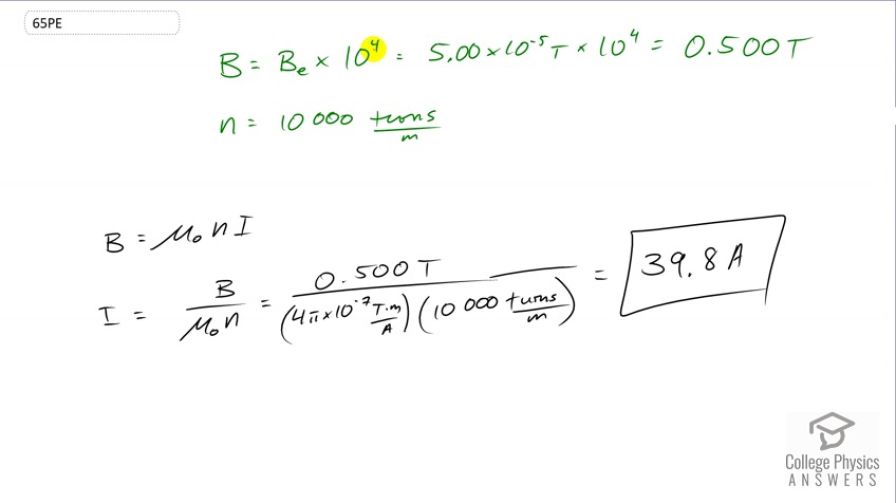 65PE
B = Bₑ × 10⁴ = 5.00×10⁻⁵ T × 10⁴ = 0.500 T
n = 10 000 turns/m
B = μ₀ n I
I = B/(μ₀ n) = 0.500 T/((4π×10⁻⁷ T·m/A)(10 000 turns/m)) = 39.8 A
College Physics
ANSWERS